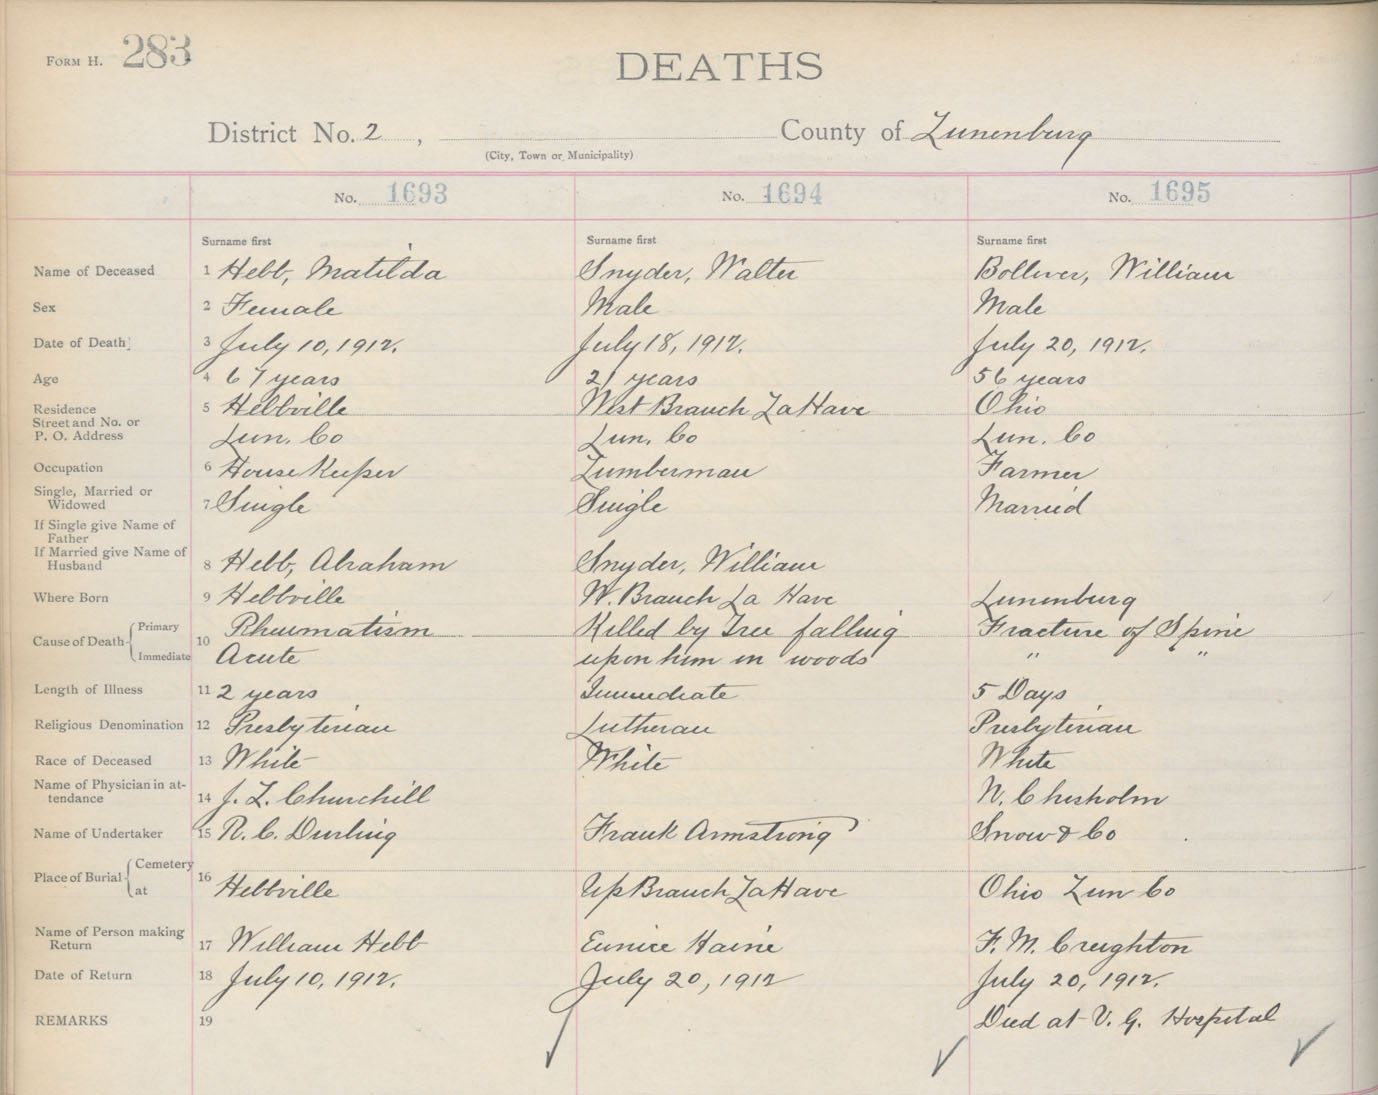 FORM H. 283
DEATHS
District No. 2 , County of Lunenburg
(City, Town or Municipality)
No. 1693 No. 1694 No. 1695
Surname first Surname first Surname first
Name of Deceased 1 Hebb, Matilda Snyder, Walter Bolliver, William
Sex 2 Female Male Male
Date of Death 3 July 10, 1912. July 18, 1912. July 20, 1912.
Age 4 67 years 21 years 56 years
Residence 5 Hebbville West Branch LaHave Ohio
Street and No. or
P. O. Address Lun. Co Lun. Co Lun. Co
Occupation 6 House Keeper Lumberman Farmer
Single, Married or
Widowed 7 Single Single Married
If Single give Name of
Father
If Married give Name of
Husband 8 Hebb, Abraham Snyder, William
Where Born 9 Hebbville W. Branch La Have Lunenburg
Cause of Death Primary 10 Rheumatism Killed by Tree falling Fracture of Spine
Immediate Acute upon him in woods " "
Length of Illness 11 2 years Immediate 5 Days
Religious Denomination 12 Presbyterian Lutheran Presbyterian
Race of Deceased 13 White White White
Name of Physician in at-
tendance 14 J. L. Churchill N. Chisholm
Name of Undertaker 15 R. C. Durling Frank Armstrong Snow & Co
Place of Burial Cemetery 16
at Hebbville Up Branch LaHave Ohio Lun Co
Name of Person making
Return 17 William Hebb Eunice Haine F. M. Creighton
Date of Return 18 July 10, 1912. July 20, 1912 July 20, 1912.
REMARKS 19 Died at V. G. Hospital